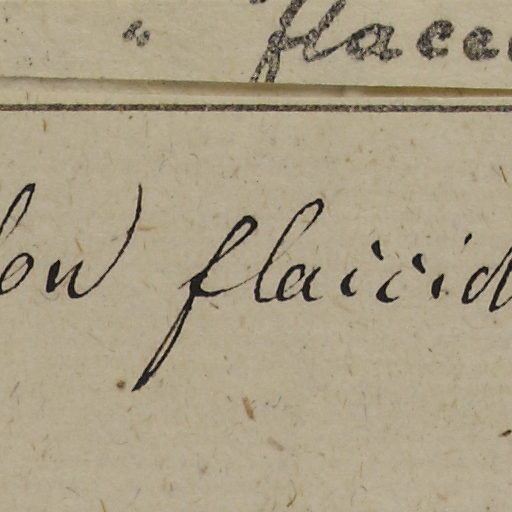 " flacc
lon flaccid